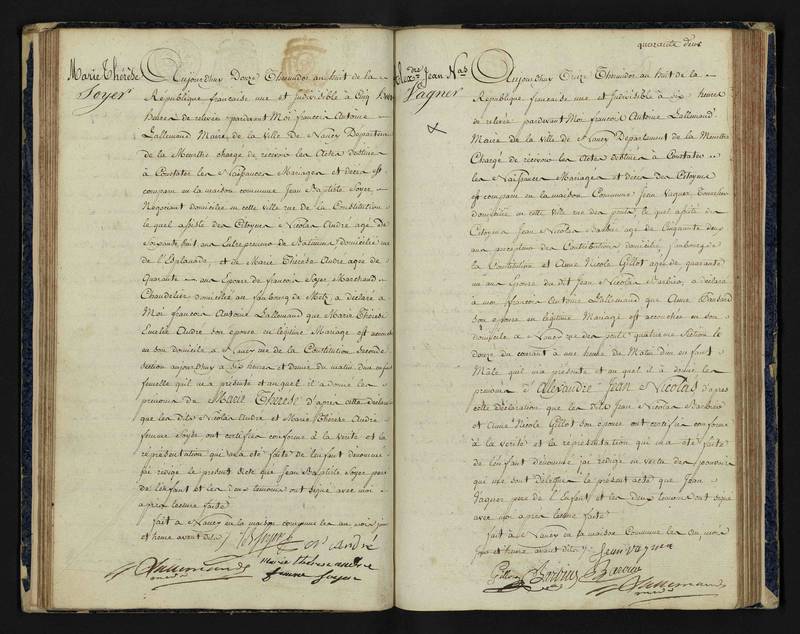 Marie Thérèse
Soyer
Aujourdhuy Douze Thermidor an huit de la
République française une et Indivisible à Cinq
heures de relevée pardevant Moi françois Antoine
Lallemand Maire de la Ville de Nancy Département
de la Meurthe chargé de recevoir les Actes destinés
à Constater les Naissances Mariages et décès est
comparu en la maison commune Jean Baptiste Soyer
Négociant domicilié en cette ville rue de la Constitution
le quel assisté des Citoyens Nicolas André agé de
Soixante huit ans Entrepreneur de Batimens domicilié rue
de l'Esplanade et de Marie Thérèse André agée de
Quarante ans Epouse de françois Soyer Marchand
Chandelier domiciliée au faubourg de Metz a déclaré à
Moi françois Antoine Lallemand que Marie Thérèse
Emelie André son épouse en légitime Mariage est accouchée
en son domicile à Nancy rue de la Constitution seconde
section aujourdhuy à dix heures et demie du matin d'un enfant
femelle qu'il m'a présenté et auquel il a donné les
prénoms de Marie Thérèse d'après cette déclaration
que les dits Nicolas André et Marie Thérèse André
femme Soyer ont certifiée conforme à la vérité et la
représentation qui m'a été faite de l'enfant dénommé
jai rédigé le présent Acte que Jean Baptiste Soyer père
de l'enfant et les deux temoins ont signé avec moi
après lecture faite
fait à Nancy en la maison commune les an mois jour
et heure avant dits
JB Soyer N André
Marie thérèse andré
femme Soyer
Lallemand
quarante deux
Alexdre Jean Nas
Vagner
Aujourdhuy Treize Thermidor an huit de la
République française une et Indivisible à six heures
de relevée pardevant Moi françois Antoine Lallemand
Maire de la ville de Nancy Département de la Meurthe
Chargé de recevoir les Actes destinés à Constater
les Naissances Mariages et décès des Citoyens
est comparu en la maison Commune Jean Vagner
domicilié en cette ville rue des ponts le quel assisté des
Citoyens Jean Nicolas Barbier agé de Cinquante deux
ans percepteur des Contributions domicilié faubourg de
la Constitution et Anne Nicole Gillot agée de quarante
un ans Epouse du dit Jean Nicolas Barbier, a déclaré
à moi françois Antoine Lallemand que Anne
son épouse en légitime Mariage est accouchée en son
domicile à Nancy rue des ponts quatrieme section le
douze du courant à une heure du Matin d'un enfant
Mâle qu'il m'a présenté et au quel il a donné les
prénoms d'Alexandre Jean Nicolas d'après
cette déclaration que les dits Jean Nicolas Barbier
et Anne Nicole Gillot son épouse ont certifiée conforme
à la vérité et la représentation qui m'a été faite
de l'enfant dénommé jai rédigé en vertu des pouvoirs
qui me sont délégués le présent acte que Jean
Vagner père de l'Enfant et les deux temoins ont signé
avec moi après lecture faite
fait à Nancy en la maison Commune les an mois
jour et heure avant dits
Jean Vagner
Gillot Barbier
Lallemand